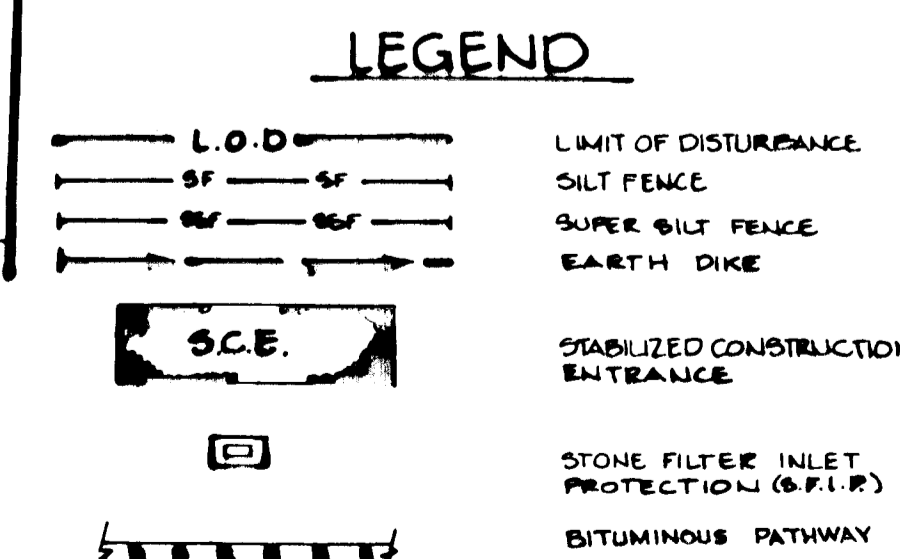 LEGEND
L.O.D LIMIT OF DISTURBANCE
SF SF SILT FENCE
SSF SSF SUPER SILT FENCE
EARTH DIKE
S.C.E. STABILIZED CONSTRUCTION
ENTRANCE
STONE FILTER INLET
PROTECTION (S.F.I.P.)
BITUMINOUS PATHWAY